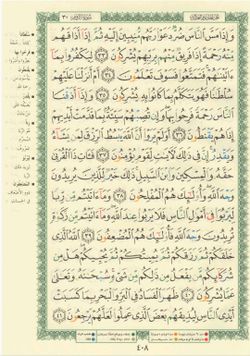 سورة الروم ٣٠
وَإِذَا مَسَّ ٱلنَّاسَ ضُرٌّ دَعَوْا۟ رَبَّهُم مُّنِيبِينَ إِلَيْهِ ثُمَّ إِذَآ أَذَاقَهُم
مِّنْهُ رَحْمَةً إِذَا فَرِيقٌ مِّنْهُم بِرَبِّهِمْ يُشْرِكُونَ ٣٣ لِيَكْفُرُوا۟ بِمَآ
ءَاتَيْنَٰهُمْ فَتَمَتَّعُوا۟ فَسَوْفَ تَعْلَمُونَ ٣٤ أَمْ أَنزَلْنَا عَلَيْهِمْ
سُلْطَٰنًا فَهُوَ يَتَكَلَّمُ بِمَا كَانُوا۟ بِهِۦ يُشْرِكُونَ ٣٥ وَإِذَآ أَذَقْنَا
ٱلنَّاسَ رَحْمَةً فَرِحُوا۟ بِهَا وَإِن تُصِبْهُمْ سَيِّئَةٌۢ بِمَا قَدَّمَتْ أَيْدِيهِمْ
إِذَا هُمْ يَقْنَطُونَ ٣٦ أَوَلَمْ يَرَوْا۟ أَنَّ ٱللَّهَ يَبْسُطُ ٱلرِّزْقَ لِمَن يَشَآءُ
وَيَقْدِرُ إِنَّ فِى ذَٰلِكَ لَءَايَٰتٍ لِّقَوْمٍ يُؤْمِنُونَ ٣٧ فَـَٔاتِ ذَا ٱلْقُرْبَىٰ
حَقَّهُۥ وَٱلْمِسْكِينَ وَٱبْنَ ٱلسَّبِيلِ ذَٰلِكَ خَيْرٌ لِّلَّذِينَ يُرِيدُونَ
وَجْهَ ٱللَّهِ وَأُو۟لَٰٓئِكَ هُمُ ٱلْمُفْلِحُونَ ٣٨ وَمَآ ءَاتَيْتُم مِّن رِّبًا
لِّيَرْبُوَا۟ فِىٓ أَمْوَٰلِ ٱلنَّاسِ فَلَا يَرْبُوا۟ عِندَ ٱللَّهِ وَمَآ ءَاتَيْتُم مِّن زَكَوٰةٍ
تُرِيدُونَ وَجْهَ ٱللَّهِ فَأُو۟لَٰٓئِكَ هُمُ ٱلْمُضْعِفُونَ ٣٩ ٱللَّهُ ٱلَّذِى
خَلَقَكُمْ ثُمَّ رَزَقَكُمْ ثُمَّ يُمِيتُكُمْ ثُمَّ يُحْيِيكُمْ هَلْ مِن
شُرَكَآئِكُم مَّن يَفْعَلُ مِن ذَٰلِكُم مِّن شَىْءٍ سُبْحَٰنَهُۥ وَتَعَٰلَىٰ
عَمَّا يُشْرِكُونَ ٤٠ ظَهَرَ ٱلْفَسَادُ فِى ٱلْبَرِّ وَٱلْبَحْرِ بِمَا كَسَبَتْ
أَيْدِى ٱلنَّاسِ لِيُذِيقَهُم بَعْضَ ٱلَّذِى عَمِلُوا۟ لَعَلَّهُمْ يَرْجِعُونَ ٤١
٤٠٨